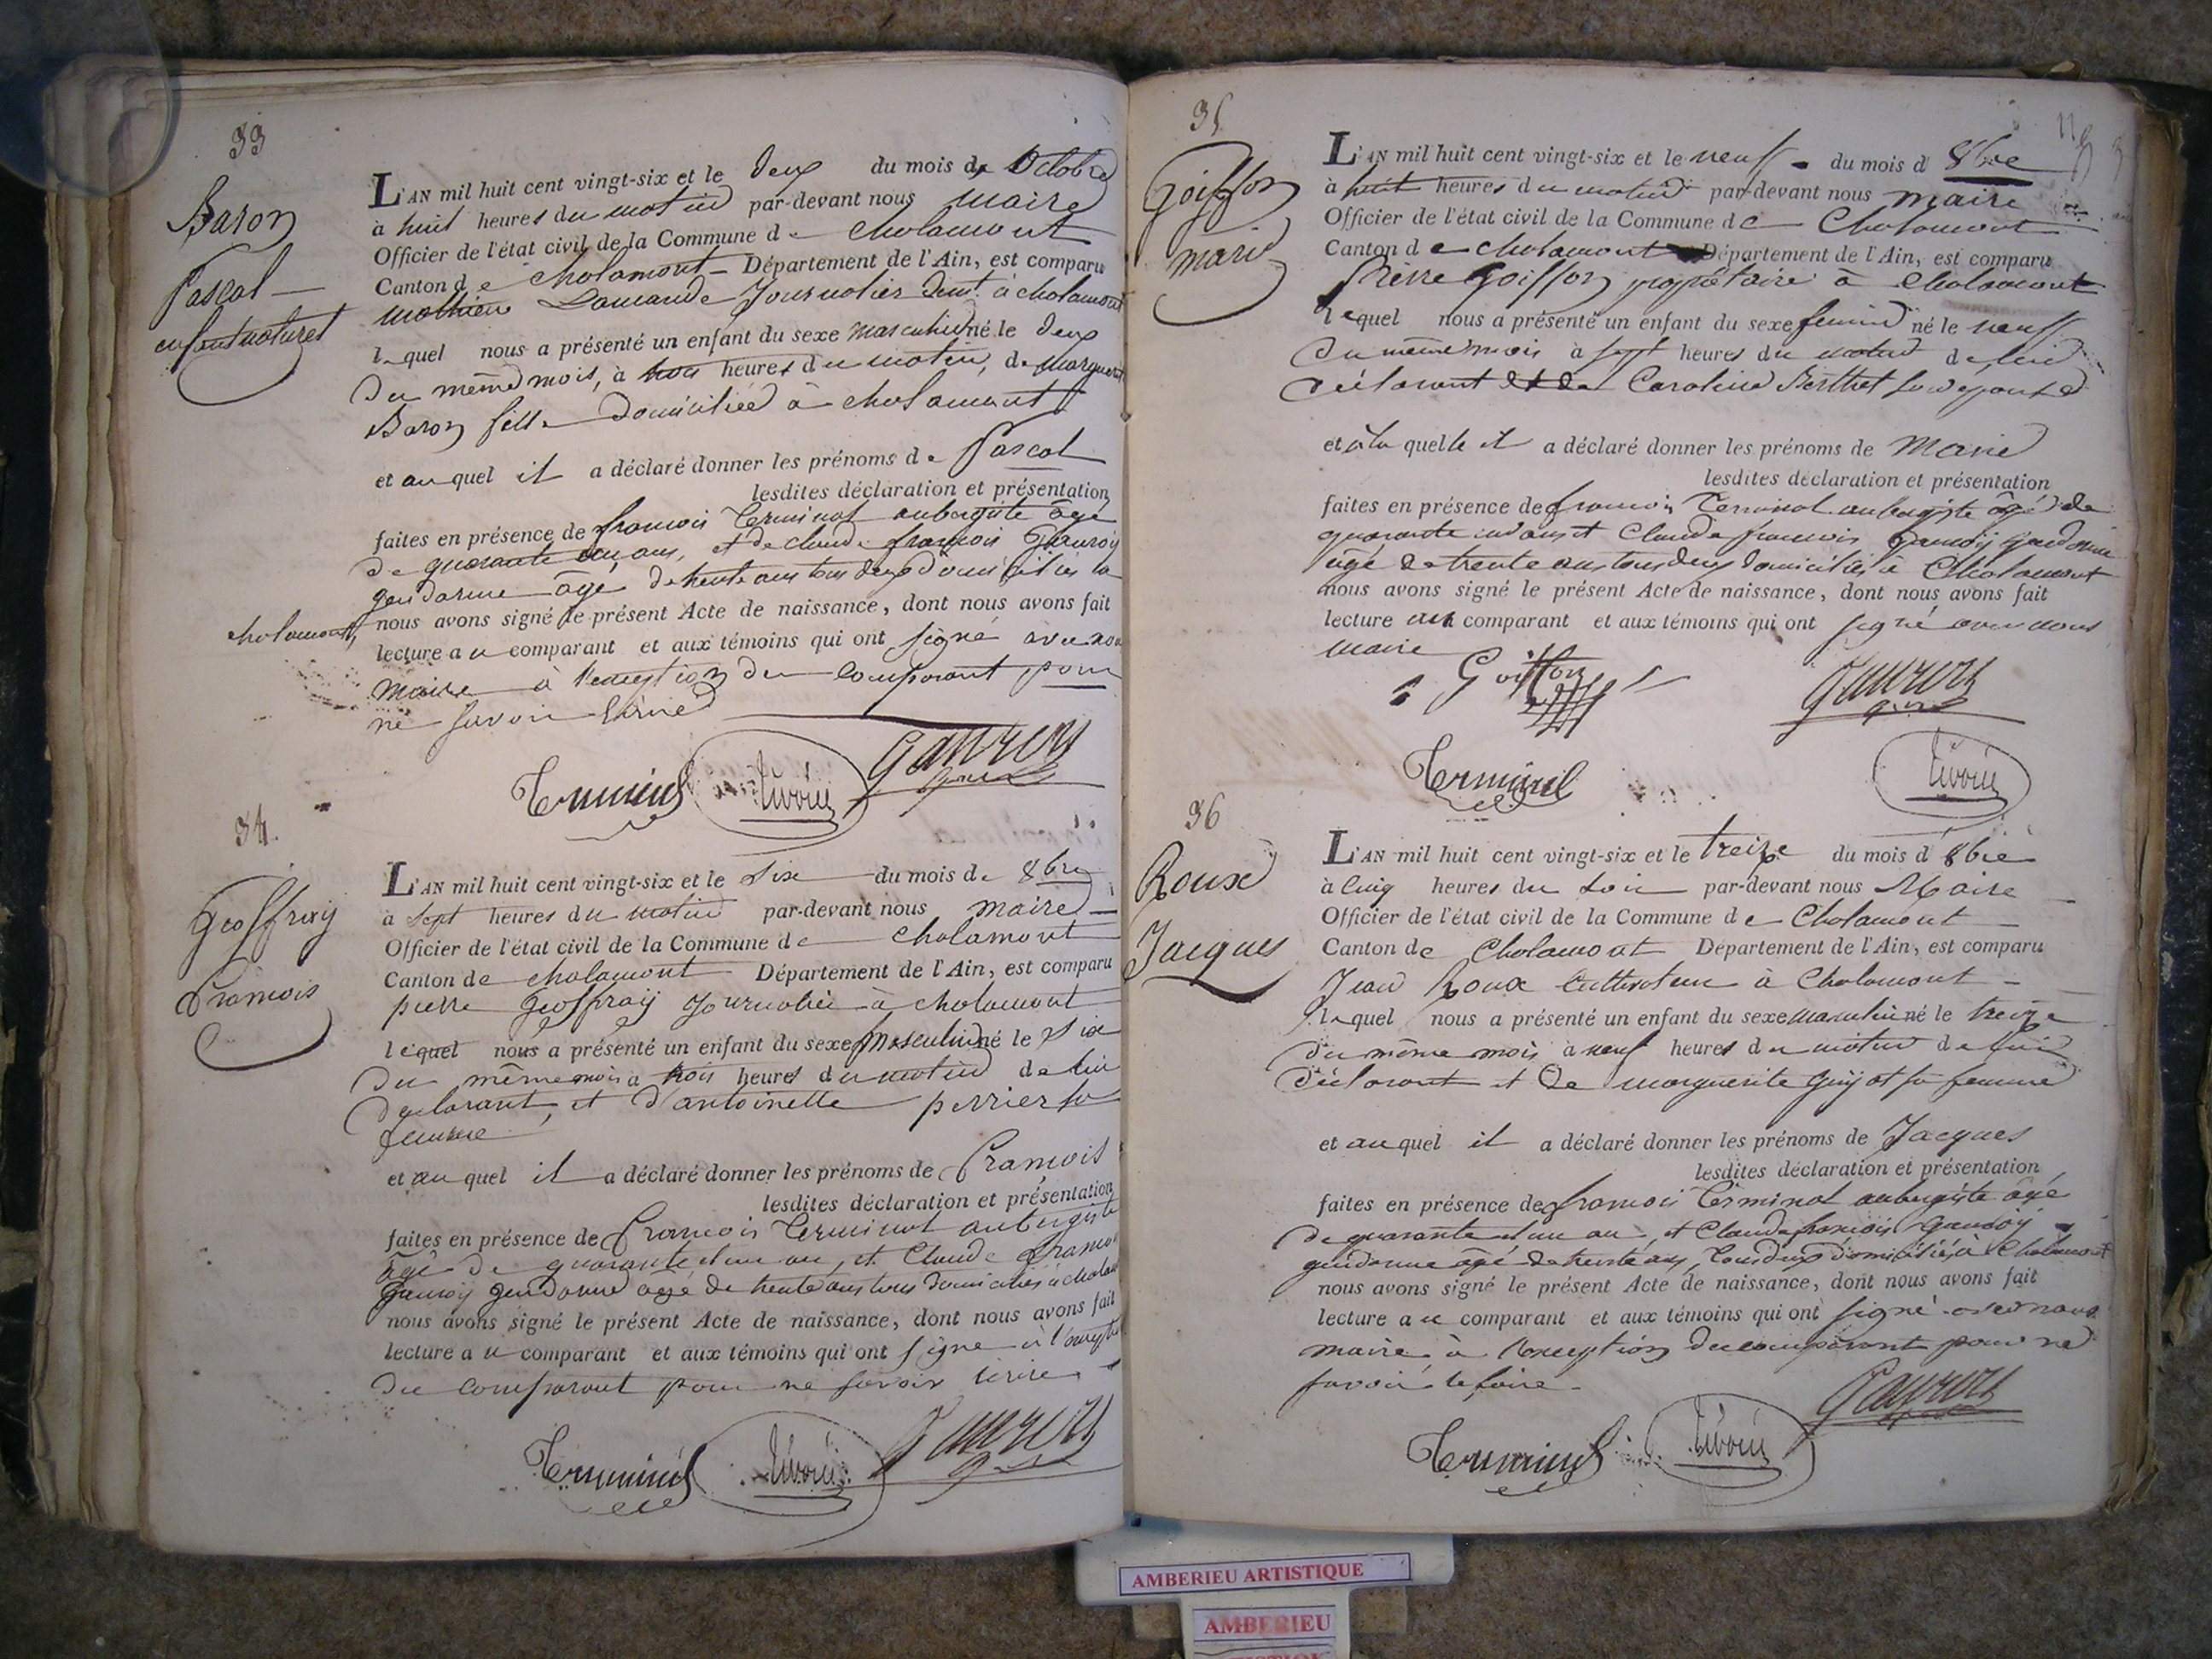 33
Baron
Pascal
enfant naturel
L'AN mil huit cent vingt-six et le deux du mois de Octobre
à huit heures du matin par-devant nous maire
Officier de l'état civil de la Commune de Cholamont
Canton de Cholamont Département de l'Ain, est comparu
mathieu Lamande Journalier demt. à cholamont
lequel nous a présenté un enfant du sexe masculin né le deux
du même mois, à trois heures du matin, de Marguerite
Baron fille domiciliée à cholamont
et auquel il a déclaré donner les prénoms de Pascal
lesdites déclaration et présentation
faites en présence de françois Terminal aubergiste âgé
de quarante un ans, et de claude françois Gauroy
gendarme âgé de trente ans tous deux domiciliés à
cholamont
nous avons signé le présent Acte de naissance, dont nous avons fait
lecture au comparant et aux témoins qui ont signé avec nous
maire à l'exception du comparant pour
ne savoir écrire
Terminal Gauroy
34
Geoffray
francois
L'AN mil huit cent vingt-six et le six du mois de 8bre
à sept heures du matin par-devant nous maire
Officier de l'état civil de la Commune de cholamont
Canton de cholamont Département de l'Ain, est comparu
pierre geoffray Journalier à cholamont
lequel nous a présenté un enfant du sexe masculin né le six
du même mois à trois heures du matin de lui
déclarant, et d'antoinette perrier sa
femme
et auquel il a déclaré donner les prénoms de françois
lesdites déclaration et présentation
faites en présence de françois Terminal aubergiste
âgé de quarante et un an, et Claude françois
Gauroy gendarme agé de trente ans tous domiciliés à cholam
nous avons signé le présent Acte de naissance, dont nous avons fait
lecture au comparant et aux témoins qui ont signé à l'exception
du comparant pour ne savoir écrire
Terminal Gauroy
35
Goiffon
marie
L'AN mil huit cent vingt-six et le neuf du mois d 8bre
à huit heures du matin par-devant nous maire
Officier de l'état civil de la Commune de Cholamont
Canton de cholamont Département de l'Ain, est comparu
Pierre Goiffon propriétaire à Cholamont
lequel nous a présenté un enfant du sexe feminin né le neuf
du même mois à sept heures du matin de lui
déclarant et de Caroline Berthet son epouse
et à la quelle il a déclaré donner les prénoms de Marie
lesdites déclaration et présentation
faites en présence de françois Terminal aubergiste âgé de
quarante un ans et Claude françois Gauroy gendarme
âgé de trente ans tous deux domiciliés à Cholamont
nous avons signé le présent Acte de naissance, dont nous avons fait
lecture au comparant et aux témoins qui ont signé avec nous
maire
Goiffon Gauroy
Terminal
36
Roux
Jacques
L'AN mil huit cent vingt-six et le treize du mois d 8bre
à cinq heures du soir par-devant nous Maire
Officier de l'état civil de la Commune de Cholamont
Canton de Cholamont Département de l'Ain, est comparu
Jean Roux cultivateur à Cholamont
lequel nous a présenté un enfant du sexe masculin né le treize
du même mois à neuf heures du matin de lui
déclarant et de marguerite Guyot sa femme
et auquel il a déclaré donner les prénoms de Jacques
lesdites déclaration et présentation
faites en présence de françois Terminal aubergiste âgé
de quarante et un an, et Claude françois Gauroy
gendarme âgé de trente ans, tous deux domiciliés à Cholamont
nous avons signé le présent Acte de naissance, dont nous avons fait
lecture au comparant et aux témoins qui ont signé avec nous
maire à l'exception du comparant pour ne
savoir le faire
Terminal Gauroy
AMBERIEU ARTISTIQUE
AMBERIEU